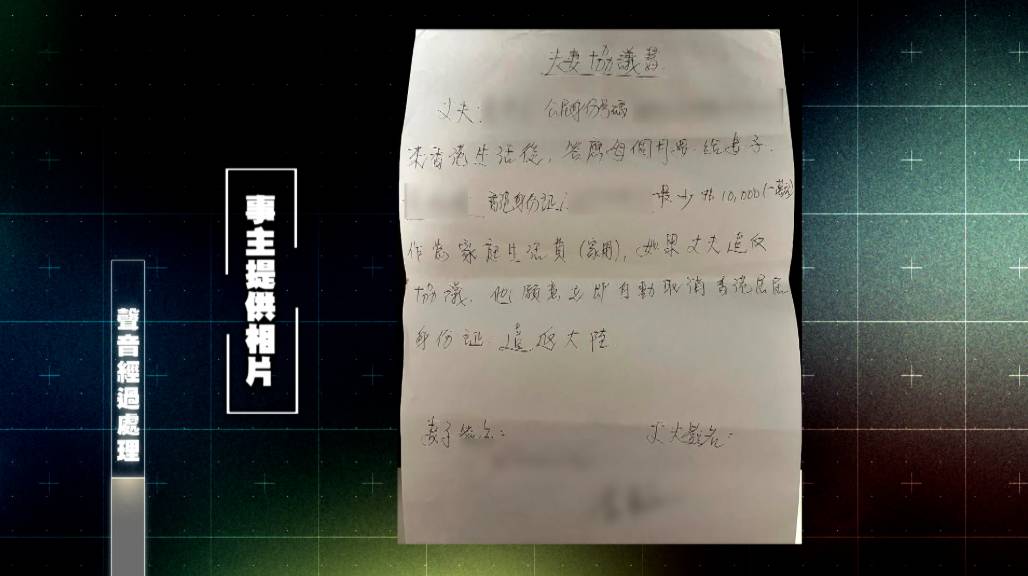 事主提供相片
聲音經過處理
夫妻協議書
丈夫: 公民身份号碼
來香港生活後, 答應每個月 給妻子.
香港身份証: 最少 10,000(一萬)
作為家庭生活費(家用), 如果丈夫違反
協議, 他願意立即自動取消香港居民
身份証 返大陸
妻子簽名: 丈夫簽名: